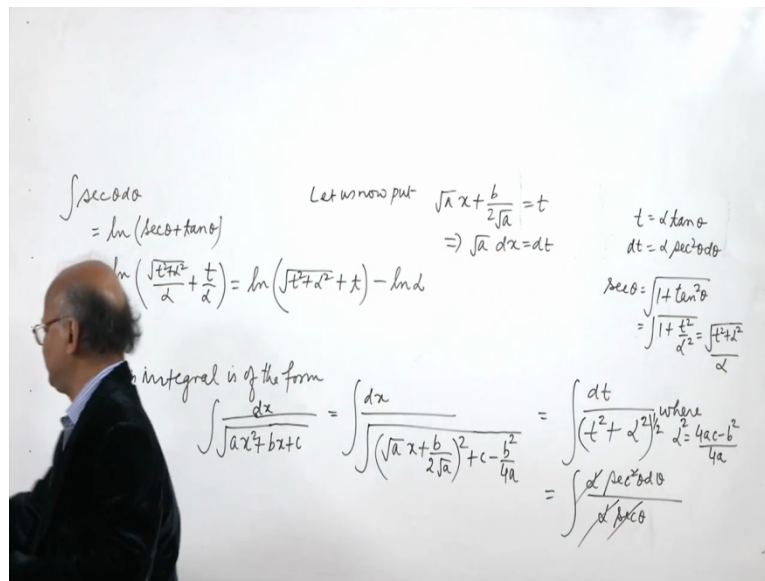 ∫ secθdθ
= ln (secθ+tanθ)
ln (√(t²+α²)/α + t/α) = ln (√(t²+α²) + t) − lnα
Let us now put √a x + b/(2√a) = t
⇒ √a dx = dt
t = α tanθ
dt = α sec²θdθ
secθ = √(1+tan²θ)
= √(1+t²/α²) = √(t²+α²)/α
integral is of the form
∫ dx/√(ax²+bx+c) = ∫ dx/√((√a x + b/(2√a))² + c − b²/(4a)) = ∫ dt/(t²+α²)^(1/2) where α² = (4ac−b²)/(4a)
= ∫ α sec²θdθ/(α secθ)